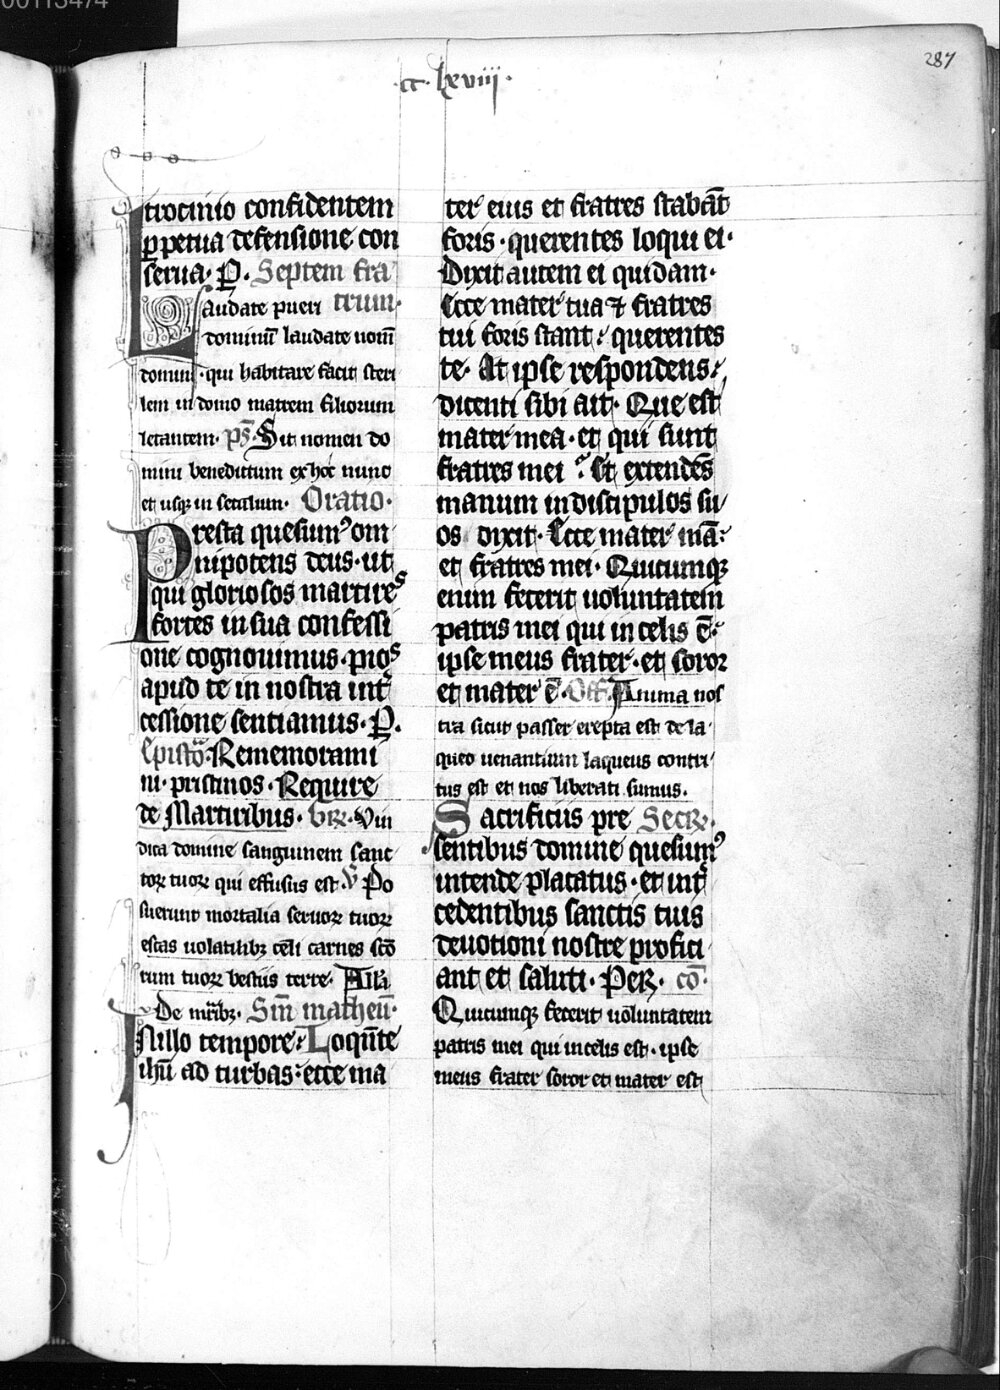 00113474
287
·cc·lxviij·
trocinio confidentem
ꝑpetua defensione con
serua· P̱. Septem fra
Laudate pueri trum·
dominū laudate nomē
domini ·qui habitare facit steri
lem in domo matrem filiorum
letantem· ps̄· Sit nomen do
mini benedictum ex hoc nunc
et usqꝫ in seculum· Oratio·
Presta quesumꝰ om
nipotens deus· ut
qui gloriosos martires
fortes in sua confessi
one cognouimus· pios
apud te in nostra int̄
cessione sentiamus· P̱.
Epistō· Rememorami
ni· pristinos· Require
de Martiribus· Gꝝ· Vin
dica domine sanguinem sanc
toꝝ tuoꝝ qui effusus est· v̄ Po
suerunt mortalia seruoꝝ tuoꝝ
escas uolatilibꝫ celi carnes sc̄o
rum tuoꝝ bestiis terre· All'a
De mr̄ibꝫ· Sm̄ matheū·
In illo tempore· Loquēte
ihū ad turbas· ecce ma
ter eius et fratres stabāt
foris· querentes loqui ei·
Dixit autem ei quidam·
Ecce mater tua ⁊ fratres
tui foris stant· querentes
te· At ipse respondens
dicenti sibi ait· Que est
mater mea· et qui sunt
fratres mei ? Et extendēs
manum in discipulos su
os dixit· Ecce mater mā
et fratres mei· Quicumqꝫ
enim fecerit uoluntatem
patris mei qui in celis ē·
ipse meus frater· et soror
et mater ē· Off̄ Anima nos
tra sicut passer erepta est de la
queo uenantium laqueus contri
tus est et nos liberati sumus·
Sacrificiis pre Secꝝ·
sentibus domine quesumꝰ
intende placatus· et int̄
cedentibus sanctis tuis
deuotioni nostre profici
ant et saluti· Per· cō·
Quicumqꝫ fecerit uoluntatem
patris mei qui in celis est· ipse
meus frater soror et mater est